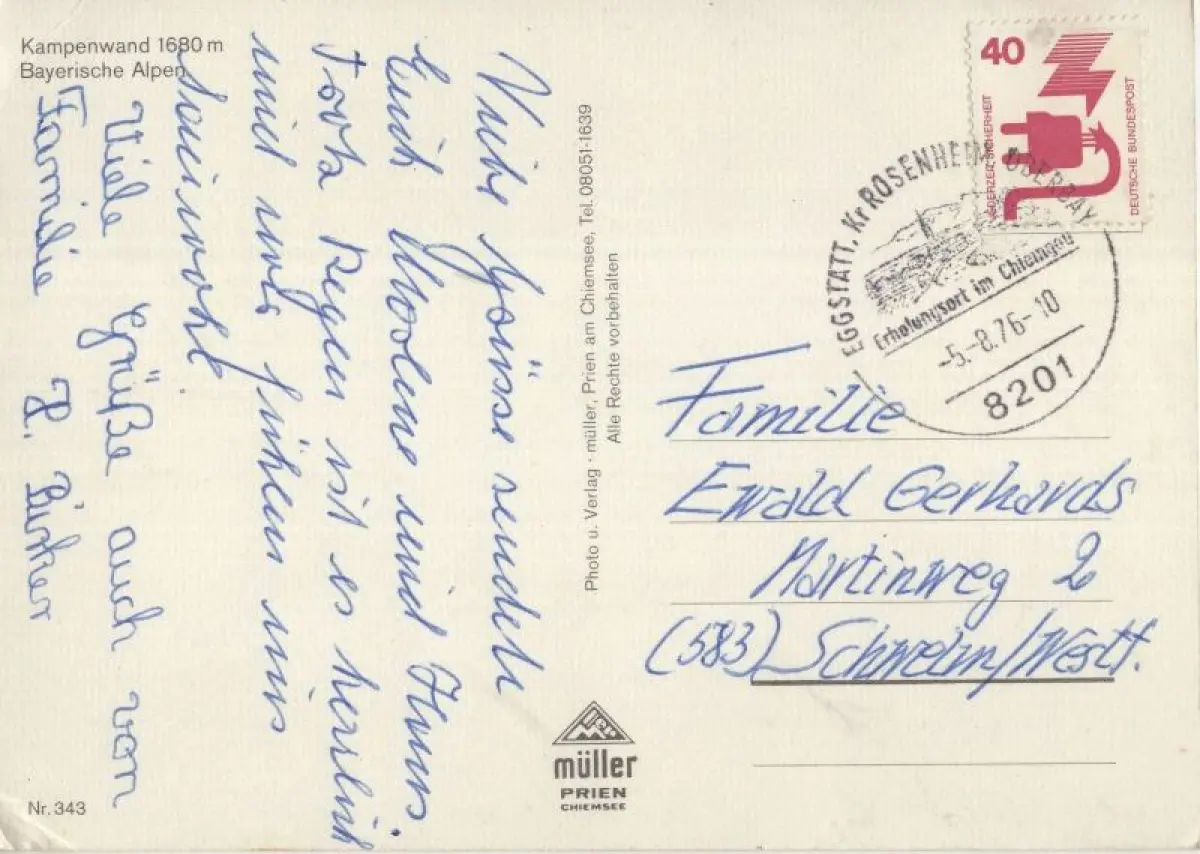 Kampenwand 1680 m
Bayerische Alpen
Viele Grüsse sendet
Euch und Hans.
Trotz Regen ist es herrlich
und wir fühlen uns
sauwohl.
Viele Grüße auch von
Familie P. Birker
Nr. 343
Photo u. Verlag · müller, Prien am Chiemsee, Tel. 08051-1639
Alle Rechte vorbehalten
müller
PRIEN
CHIEMSEE
40
JEDERZEIT SICHERHEIT
DEUTSCHE BUNDESPOST
EGGSTÄTT, Kr ROSENHEIM OBERBAY
Erholungsort im Chiemgau
-5.-8.76-10
8201
Familie
Ewald Gerhards
Martinweg 2
(583) Schwelm/Westf.